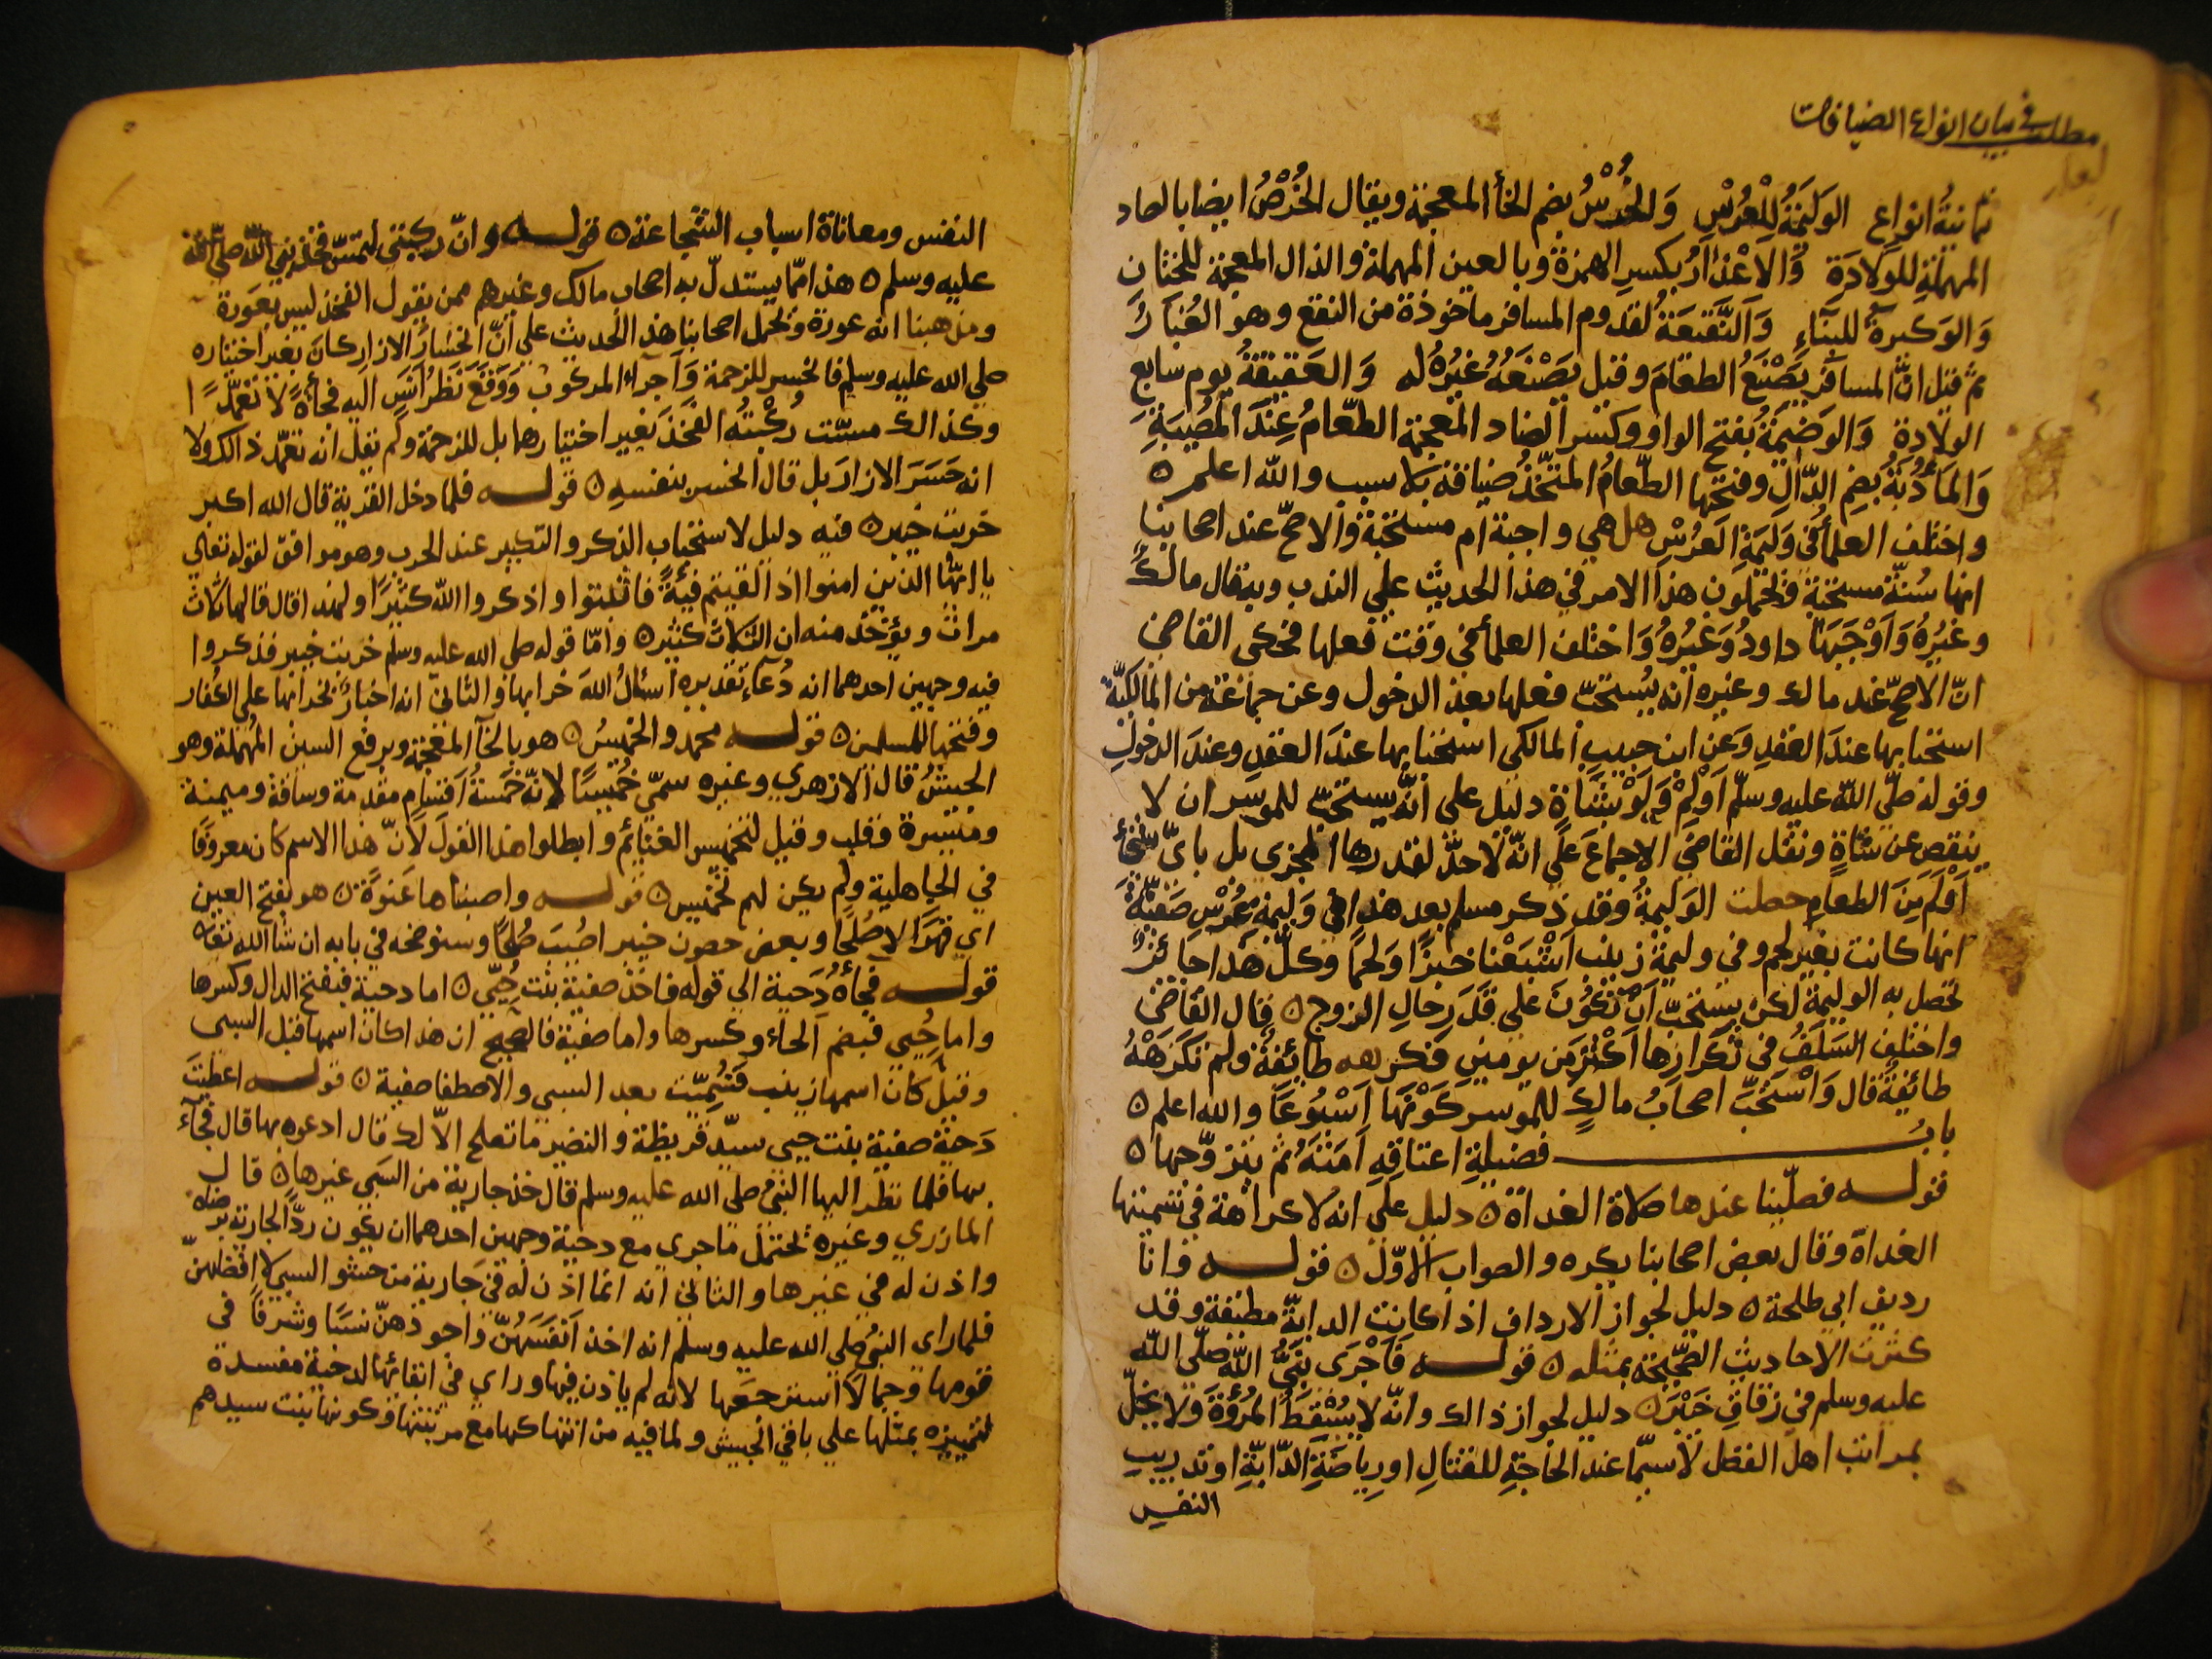 مطلب في بيان انواع الضيافات
ثمانية انواع الوَلِيمَةُ لِلْعُرْسِ وَالخُرْسُ بضم الخأ المعجمة ويقال الخُرْصُ ايضا بالصاد
المهملة للولادَةِ وَالاعْذَارُ بكسرِ الهمزة وبالعين المهملة والذال المعجمة للختان
وَالوَكيرةُ للبنَاءِ وَالنَّقيعَةُ لقدوم المسافر ماخوذة من النقع وهو الغُبَارُ
ثم قيل انَّ المسافر يَصْنَعُ الطعَامَ وقيل يَصْنَعُهُ غَيْرُهُ له وَالعَقيقَةُ يوم سابع
الولادة وَالوَضيمَةُ بفتح الواو وكسر الضاد المعجمة الطّعَامُ عِنْدَ المُصِيبَةِ
وَالمَأدُبَةُ بضم الدَّالِ وفتحها الطّعَامُ المتّخَذُ ضيافة بلا سبب والله اعلم ٥
واختلف العلمأ في وَلِيمَةِ العَرُسِ هل هي واجبة ام مستحبة والاصحّ عند اصحابنا
انها سُنَّة مستحبة ويحملون هذا الامر في هذا الحديث علي الندب وبه قال مالكٌ
وغَيْرُهُ وَاَوْجَبَهَا داودُ وَغَيْرُهُ وَاختلف العلمأ في وقت فعلها فحكى القاضي
انّ الاصحّ عند مالك وغيره انه يُستحبّ فعلها بعد الدخول وعن جماعة من المالكيَّة
استحبابها عندَ العقدِ وَعَن ابن حبيبٍ المالكي استحبابها عندَ العقدِ وعندَ الدخولِ
وقوله صلّى اللّه عليه وسلّم اَوْلِمْ وَلَوْ بِشَاة دليل على انَّهُ يستحبّ للموسر ان لا
ينقص عن شاةٍ ونقل القاضي الاجماعَ عَلَى انّه لاحدّ لقدرها المجزى بل باىّ شئٍ
اَوْلَمَ مِنَ الطعامِ حصلت الوَلِيمَةُ وقد ذكر مسلم بعد هذا في وَلِيمَةِ عُرْسِ صَفيّةَ
انها كانت بغير لحم وفي وليمة زينب اَشْبَعْنَا خبزًا وَلَحمًا وكلّ هذا جَائزٌ
تحصل به الوليمة لكن يستحبّ اَنْ تكُونَ علي قَدَرِ حالِ الزوج ٥ قال القاضي
واختلف السَلَفُ في تكرارِهَا اَكْثَرَ مَن يومينِ فكرهه طائفةٌ ولم تكْرَهْهُ
طائفةٌ قال وَاسْتَحَبَّ اصحَابُ مالكٍ للموسر كَوْنَهَا اُسْبُوعًا والله اعلم ٥
بابُ فضيلةِ اعتاقهِ اَمَتَهُ ثم يتزوّجها ٥
قوله فصلّينا عندها صلاة الغداة ٥ دليل علي انه لاكراهة في تسميتها
الغداة وقال بعض اصحابنا يكره والصواب الاوّل ٥ قوله وانا
رديف ابي طلحة ٥ دليل لجواز الارداف اذا كانت الدابّة مطيقة وقد
كثرت الاحاديث الصَّحيحَة بمثله ٥ قوله فَاَجْرَى نَبيُّ اللّه صَلّى اللّه
عليه وسلم في زقاقِ خَيْبَرَ ٥ دليل لجواز ذالك وانّه لا يُسْقِطُ المُرُؤَةَ وَلا يخلّ
بمراتب اهل الفضل لاسيّما عند الحاجَةِ للقتالِ اورياضَةِ الدَّابَّةِ اوتدريبِ
النفس
النفس ومعاناة اسباب الشجاعة ٥ قوله وانّ ركبتي لتمسّ فخذ نبي اللّه صلّى اللّه
عليه وسلم ٥ هذا ممّا يستدلّ به اصحاب مالك وغيرهم ممن يقول الفخذ ليس بعَورة
ومذهبنا انّه عورة ويحمل اصحابنا هذا الحديث علي اَنّ انحسَارَ الازار كانَ بغير اختياره
صلي الله عليه وسلم فانحسر للزحمة وَاَجرآء المركوب وَوَقَعَ نَظَرُ اَنَسٍ اليه فجأةً لا تعمّدًا
وكذالك مسّت رُكْبَتُه الفخذَ بغير اختيارهما بل للزحمة ولم يقل انه تعمّد ذالك ولا
انه حَسَرَ الازارَ بل قال انحسر بنفسهِ ٥ قوله فلما دخل القرية قال الله اكبر
خربت خيبر ٥ فيه دليل لاستحباب الذكر والتكبير عند الحرب وهو موافق لقوله تعالي
يا ايّها الذين امنوا اذا لقيتم فيئةً فاثبتوا واذكروا اللّه كثيرًا ولهذا قال قالها ثلاث
مرات ويؤخذ منه ان الثلاث كثير ٥ وامّا قوله صلي الله عليه وسلم خربت خيبر فذكروا
فيه وجهين احدهما انه دُعآء تقديره اسئالُ اللّهَ خرابها والثاني انه اخبارٌ بخرابها علي الكفار
وفتحها للمسلمين ٥ قوله محمد والخميسُ ٥ هو بالخآ المعجمة وبرفع السين المُهملة وهو
الجيش قال الازهري وغيره سمّي خميسًا لانّه خمسةُ اَقسَامٍ مقدمة وساقة وميمنة
وميسرة وقلب وقيل لتخميس الغنائم وابطلوا هذا القولَ لاَنّ هذا الاسم كان معروفًا
في الجاهلية ولم يكن لهم تخميس ٥ قوله واصبناها عَنوَةً ٥ هو بفتح العين
اي قهرًا لا صُلحًا وبعض حصون خيبر اصُيبَ صُلحًا وسنوضحه في بابه ان شأ الله تعا ٥
قوله فجأهُ دَحية الي قوله فاخذ صفيّة بنت حُيَيّ ٥ اما دحية فبفتح الدال وكسرها
واما حُيي فبضم الحاء وكسرها واما صفية فالصحيح ان هذا كان اسمها قبل السبى
وقيل كان اسمها زينب فَسُمِّيَت بعد السبي والاصطفا صفية ٥ قوله اعطيتَ
دَحيَةَ صفيَّة بنت حيي سيّد قريظة والنضير ما تصلح الاّ لك قال ادعوه بها قال فجآء
بها فلما نظر اليها النبيُ صلى الله عليه وسلم قال خذ جارية من السَبي غيرها ٥ قال
المازري وغيره يحتمل ماجري مع دحية وجهين احدهما ان يكون ردّ الجارية برضاه
واذن له في غيرها والثاني انه انما اذن له في جَارية من حشو السبي لا افضلهنّ
فلما راى النبيُ صلى الله عليه وسلم انه اخذ اَنفَسَهُنّ واجودهنّ نسبًا وشرفًا في
قومها وجمالاً استرجعها لانه لم ياذن فيها وراي في ابقائها لدحية مفسدة
لتميزه بمثلها علي باقي الجيش ولما فيه من انتهاكها مع مرتبتها وكونها بنت سيدهم